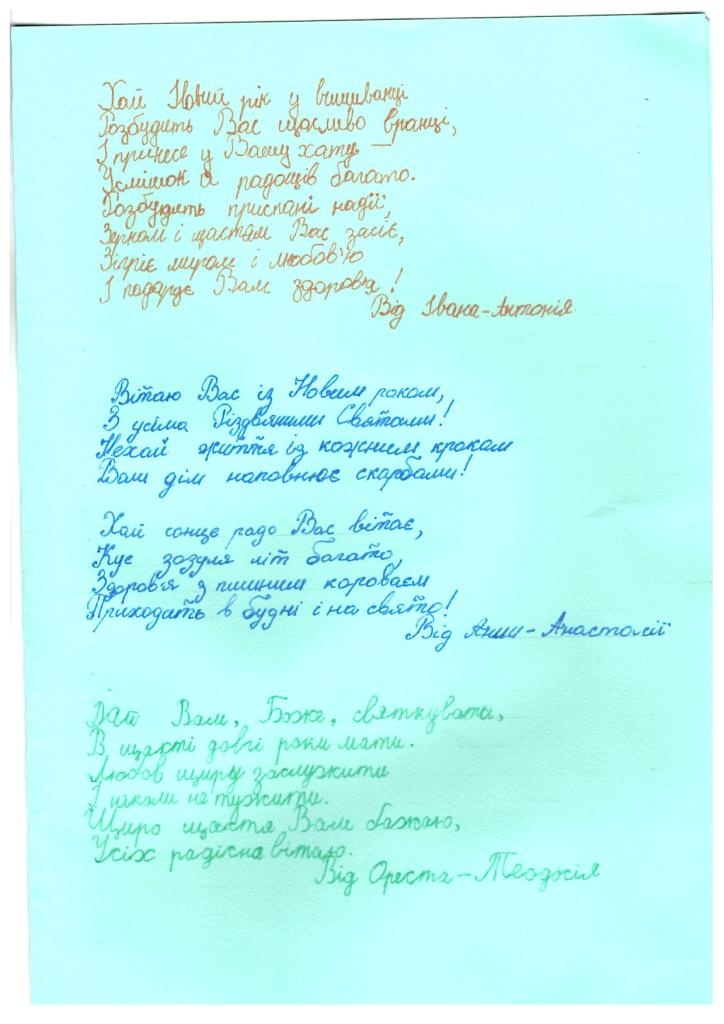 Хай Новий рік у вишиванці
Розбудить Вас щасливо вранці,
І принесе у Вашу хату —
Усмішок й радощів багато.
Розбудить приспані надії,
Зерном і щастям Вас засіє,
Зігріє миром і любов'ю
І подарує Вам здоров'я!
Від Івана-Антонія
Вітаю Вас із Новим роком,
З усіма Різдвяними Святами!
Нехай життя із кожним кроком
Ваш дім наповнює скарбами!
Хай сонце радо Вас вітає,
Кує зозуля літ багато,
Здоров'я з пишним короваєм
Приходить в будні і на свято!
Від Анни-Анастасії
Дай Вам, Боже, святкувати,
В щасті довгі роки мати.
Любов щиру заслужити
І ніколи не тужити.
Щиро щастя Вам бажаю,
Усіх радісно вітаю.
Від Ореста-Теодосія